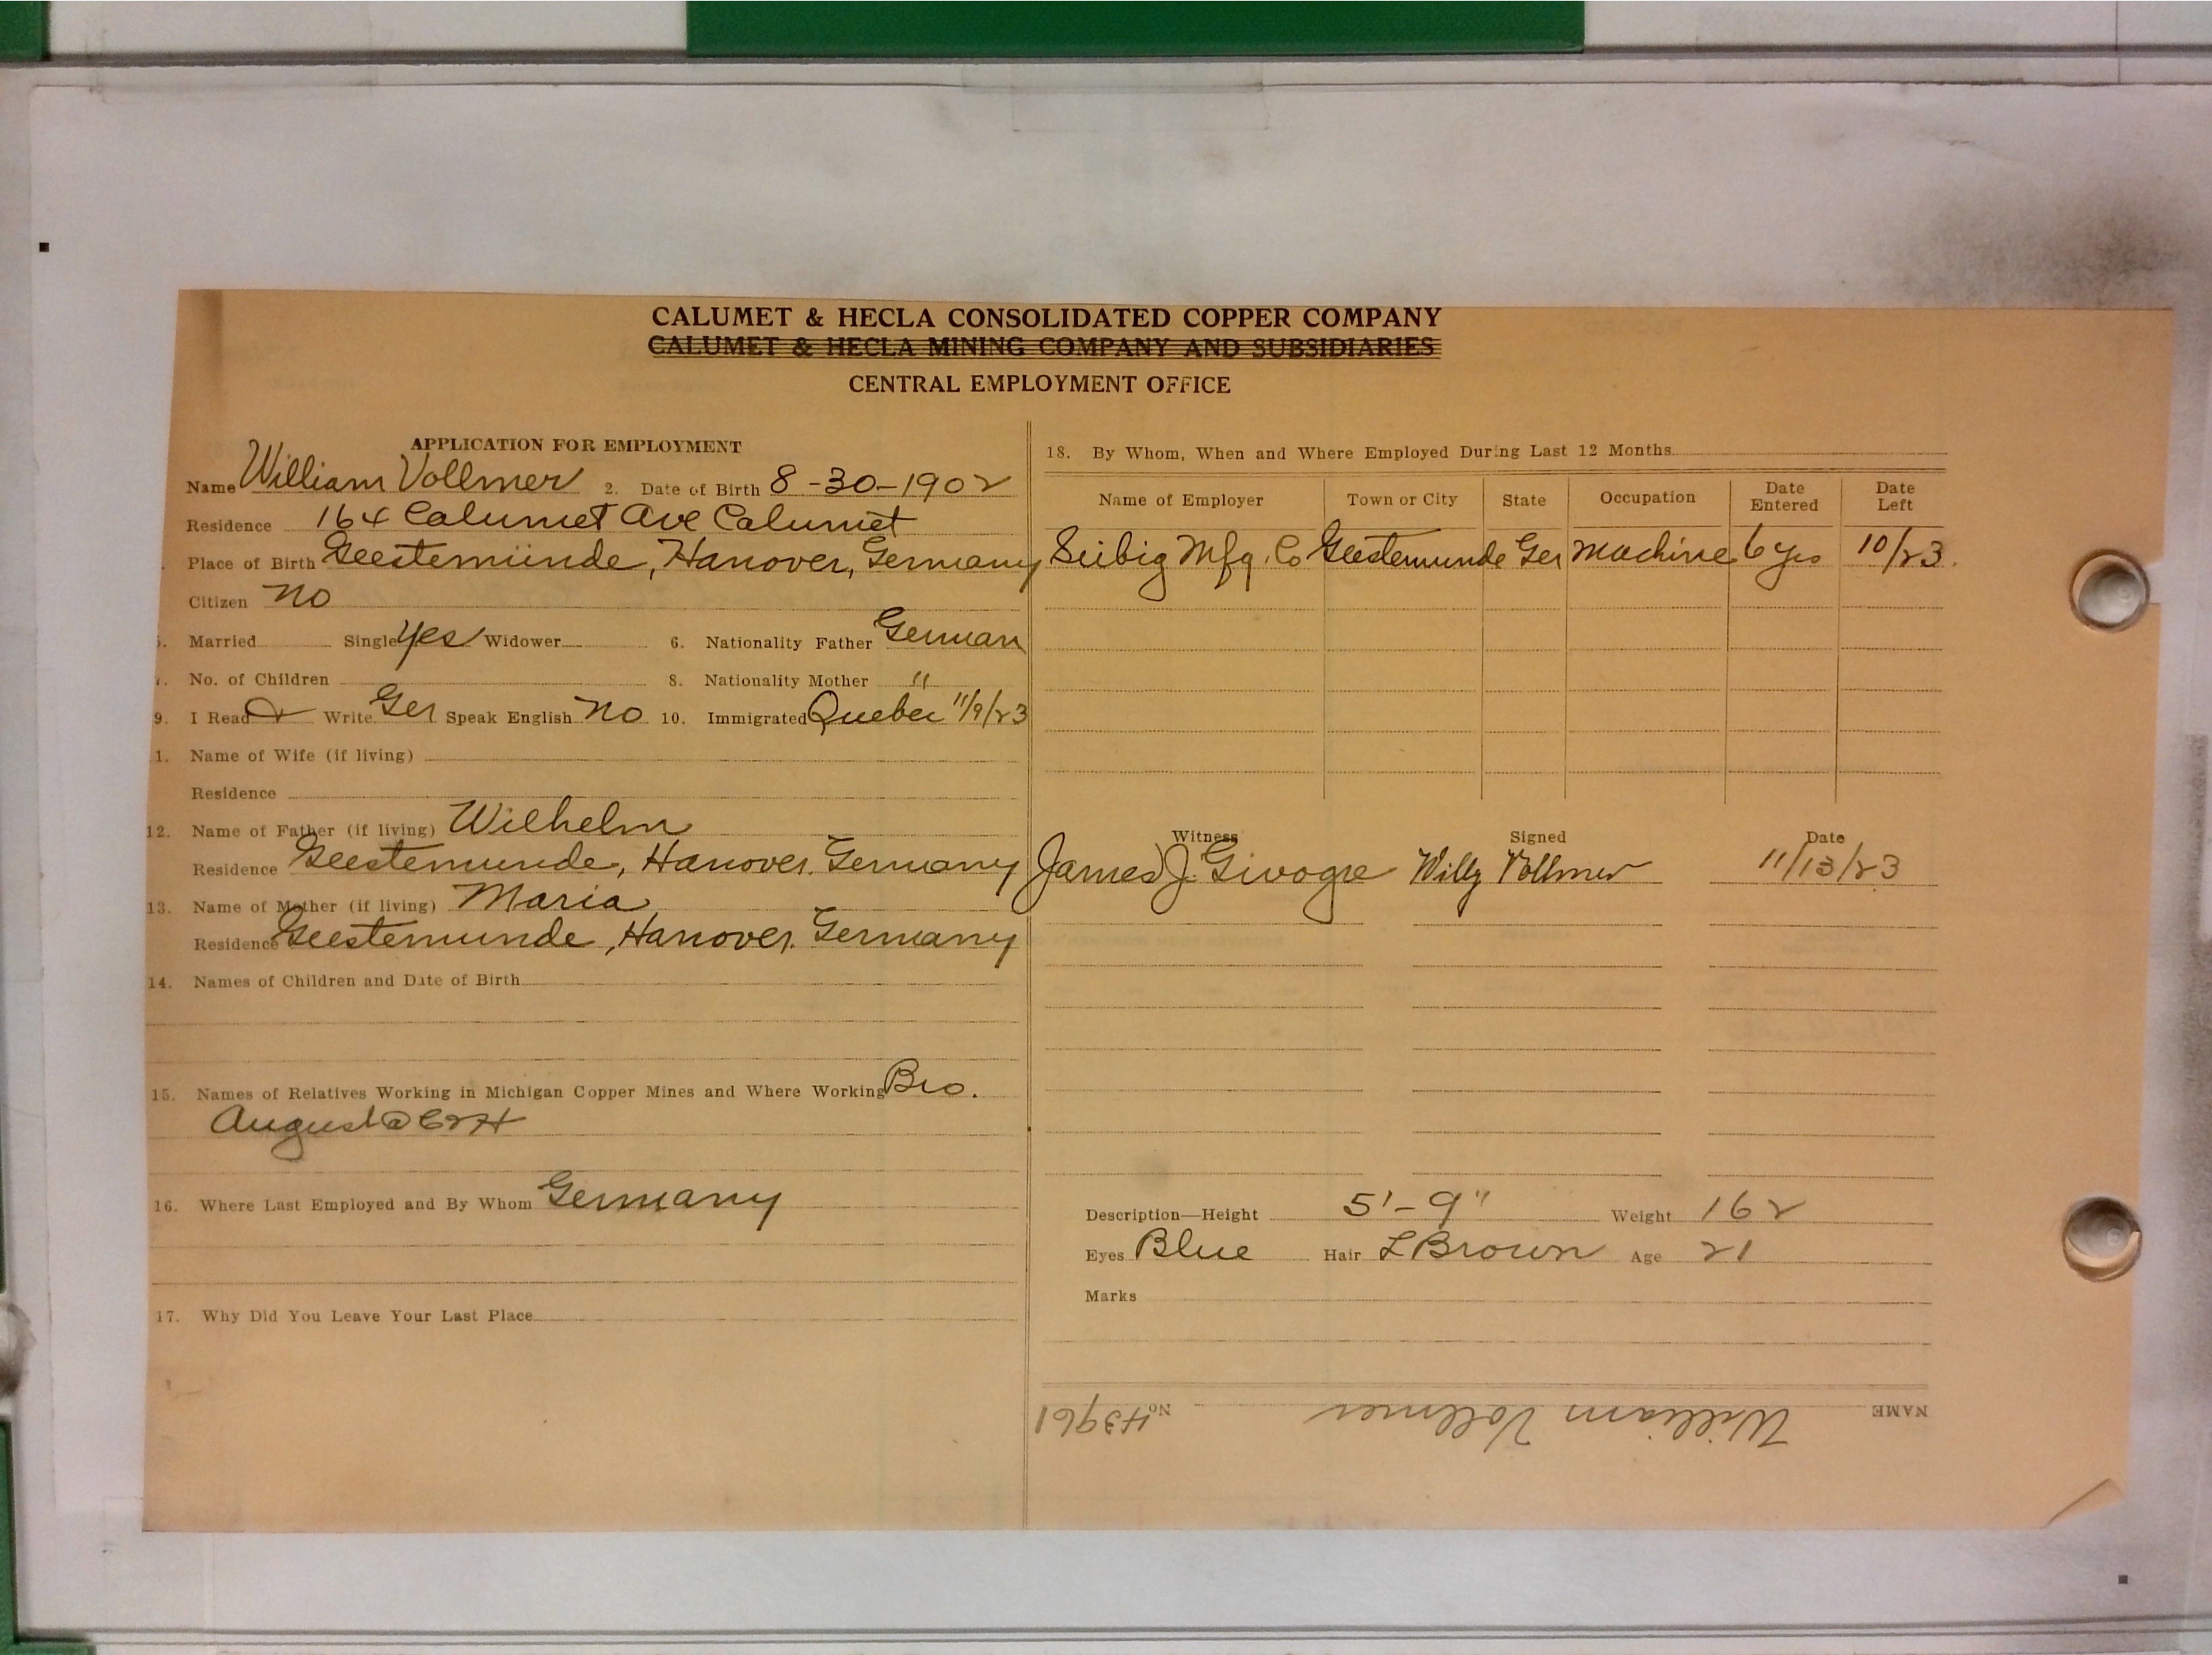 CALUMET & HECLA CONSOLIDATED COPPER COMPANY
CALUMET & HECLA MINING COMPANY AND SUBSIDIARIES
CENTRAL EMPLOYMENT OFFICE
APPLICATION FOR EMPLOYMENT
Name William Vollmer 2. Date of Birth 8-30-1902
Residence 164 Calumet Ave Calumet
Place of Birth Geestemünde, Hanover, Germany
Citizen No
Married Single Yes Widower 6. Nationality Father German
No. of Children 8. Nationality Mother "
9. I Read & Write Ger Speak English No 10. Immigrated Quebec 11/9/23
1. Name of Wife (if living)
Residence
12. Name of Father (if living) Wilhelm
Residence Geestemunde, Hanover. Germany
13. Name of Mother (if living) Maria
Residence Geestemunde, Hanover. Germany
14. Names of Children and Date of Birth
15. Names of Relatives Working in Michigan Copper Mines and Where Working Bro.
August @ C&H
16. Where Last Employed and By Whom Germany
17. Why Did You Leave Your Last Place
18. By Whom, When and Where Employed During Last 12 Months
Name of Employer Town or City State Occupation Date Entered Date Left
Seibig Mfg. Co Geestemunde Ger Machine 6 yrs 10/23.
Witness Signed Date
James J. Givogre Willy Vollmer 11/13/23
Description—Height 5'-9" Weight 162
Eyes Blue Hair L Brown Age 21
Marks
NAME William Vollmer No. 43961